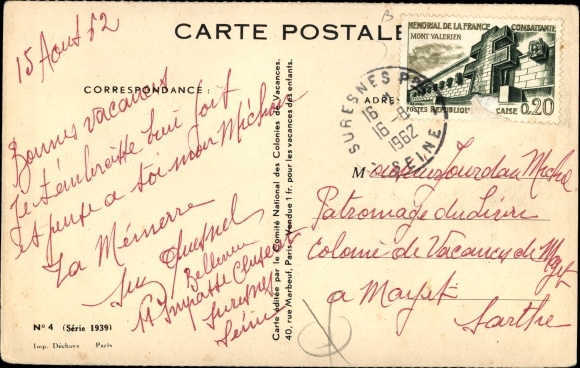 CARTE POSTALE
15 Aout 62
CORRESPONDANCE:
Bonnes vacances
Je t'embrasse bien fort
et pense a toi mon Michel
Ta Mémerre
Quesnel
Bellevue
11 Impasse
Suresnes
Seine
N° 4 (Série 1939)
Imp. Déchaux Paris
Carte éditée par le Comité National des Colonies de Vacances,
40, rue Marbeuf, Paris - Vendue 1 fr. pour les vacances des enfants.
B
MÉMORIAL DE LA FRANCE COMBATTANTE
MONT VALERIEN
POSTES REPUBLIQUE CAISE 0,20
SURESNES PPAL
16 H
16-8
1962
SEINE
ADRES
Monsieur Jourdau Michel
Patronage du
Colonie de Vacances de Mayet
a Mayet
Sarthe